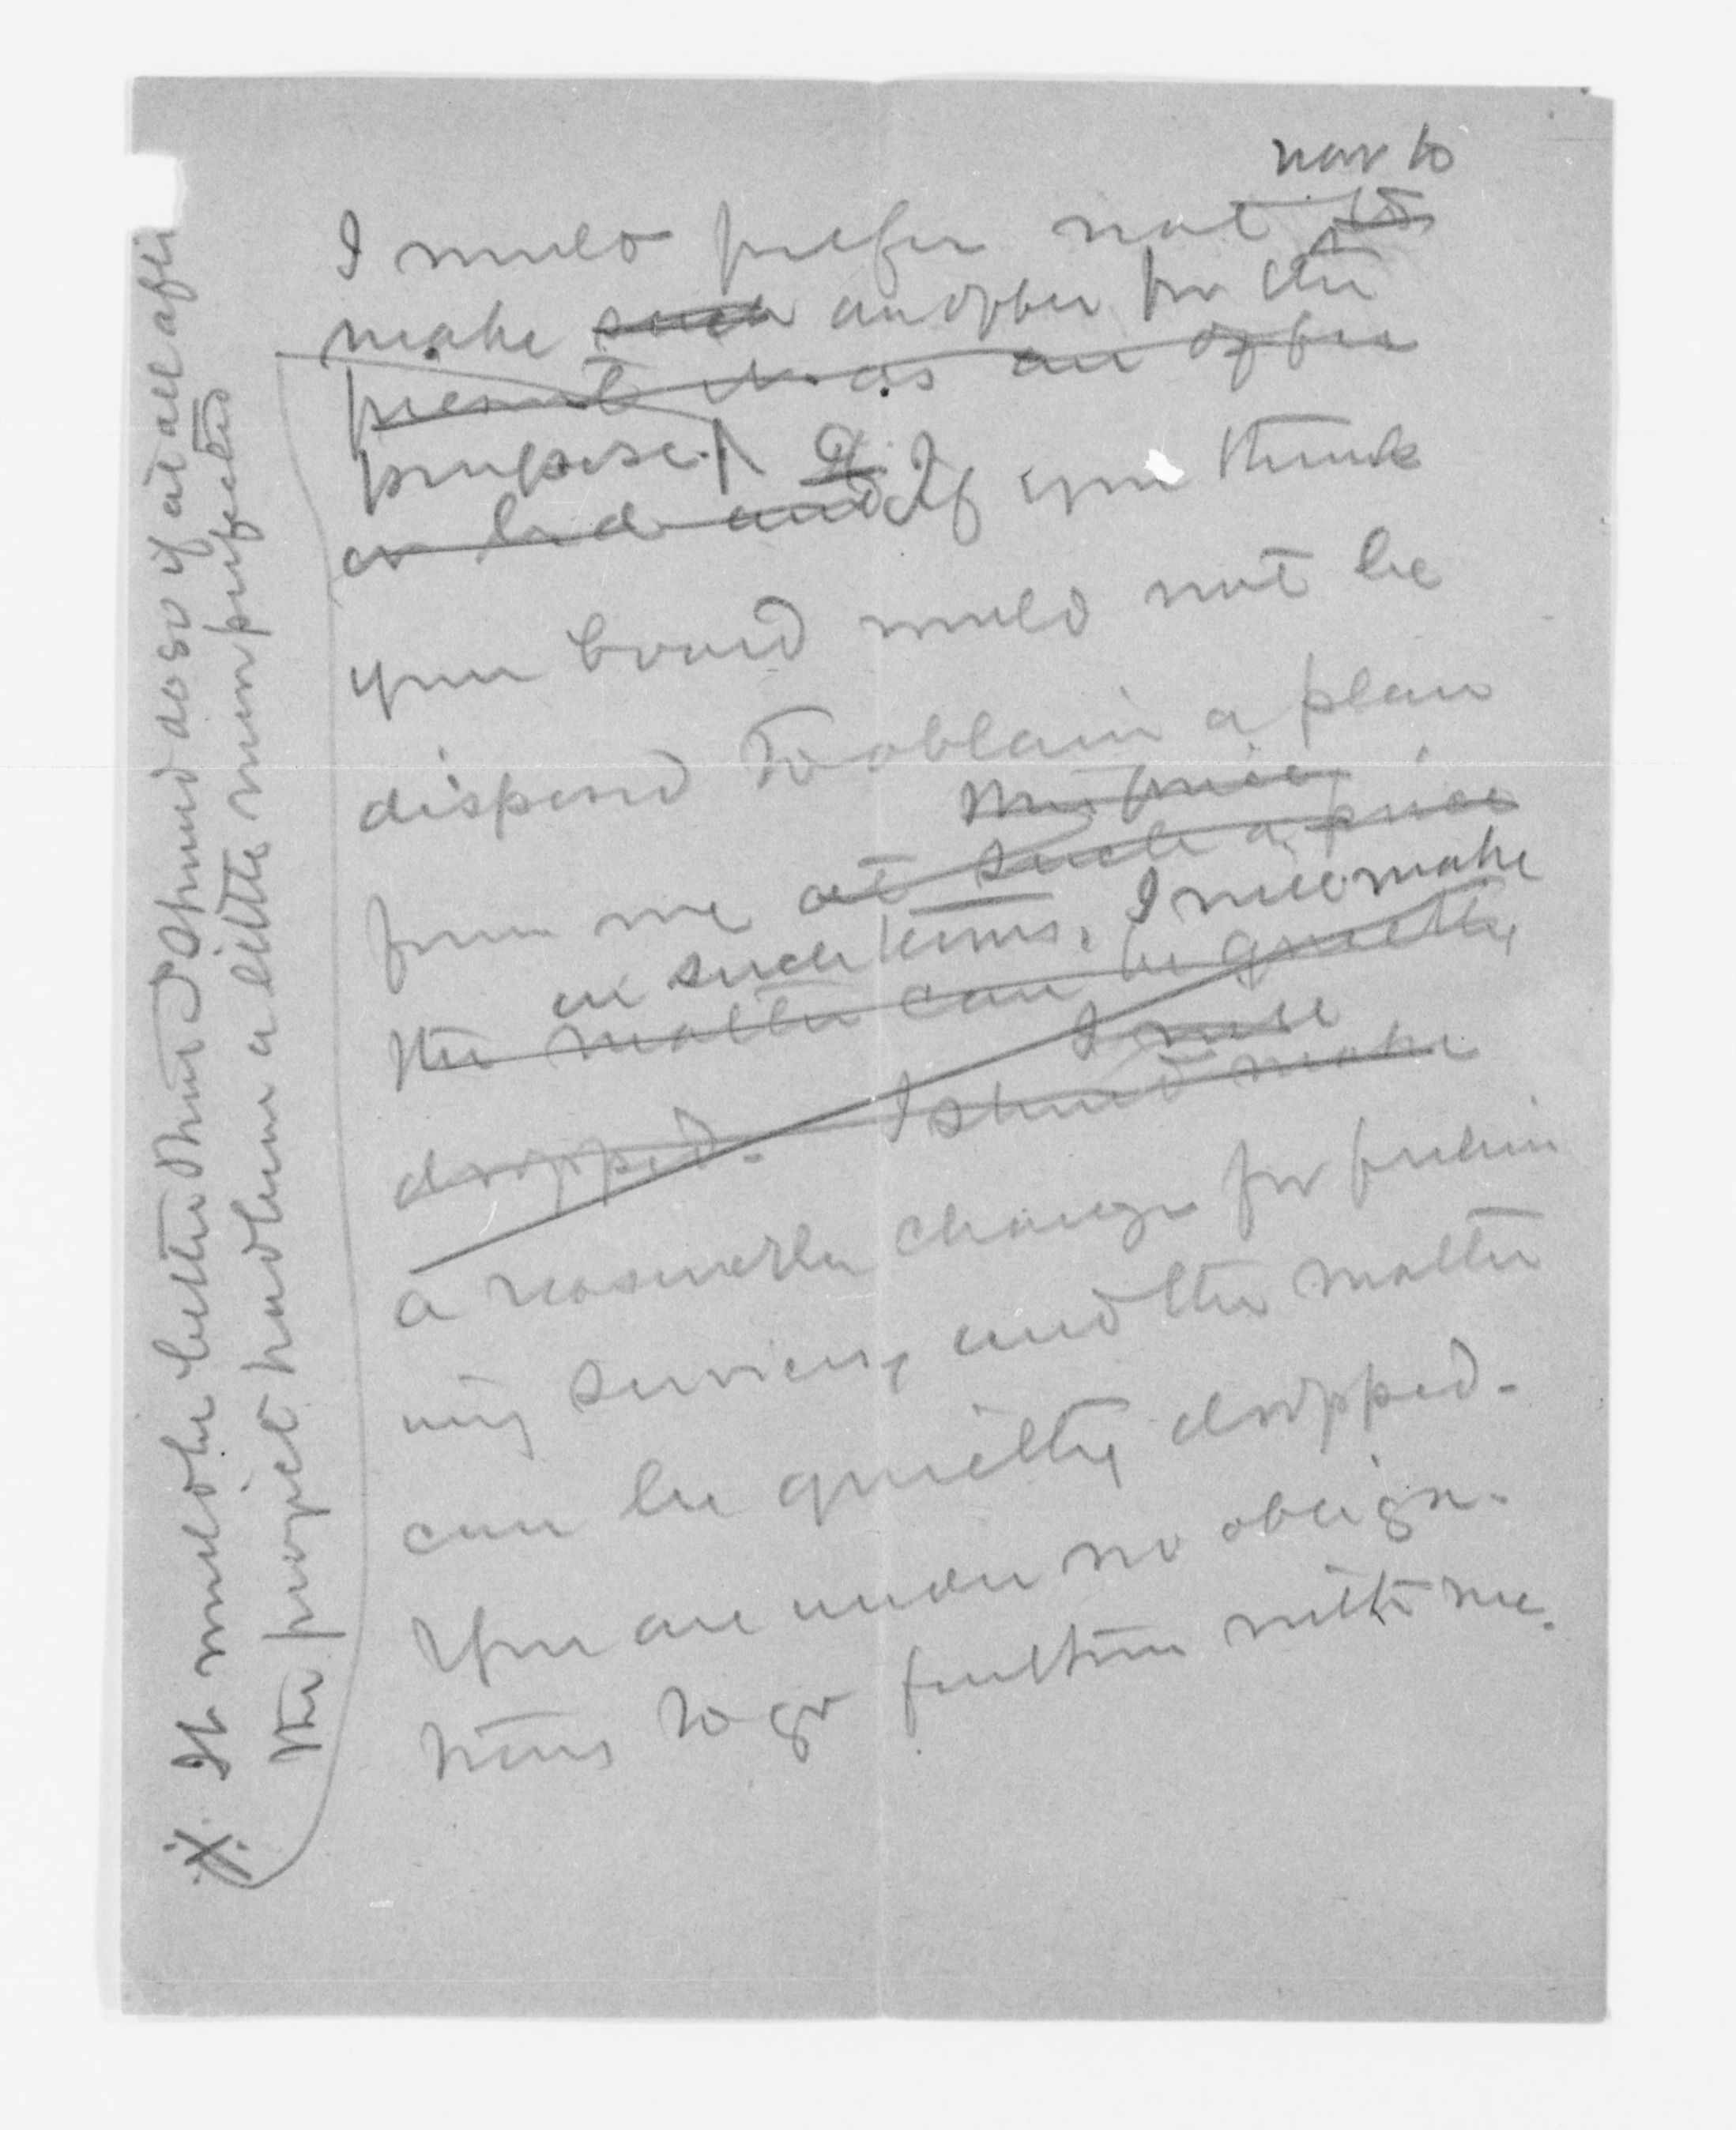 now to
I would prefer not to
make such an offer for the
present it as an offer
purpose. If
or bid and If you think
your board would not be
disposed to obtain a plan
My price
from me at such a price
on such terms, I will make
the matter can be quietly
I will
dropped. I should make
a reasonable charge for prelim
my services, and the matter
can be quietly dropped.
You are under no obliga-
tions to go further with me.
It would be better that I should do so if at all after
the project had been a little more perfected